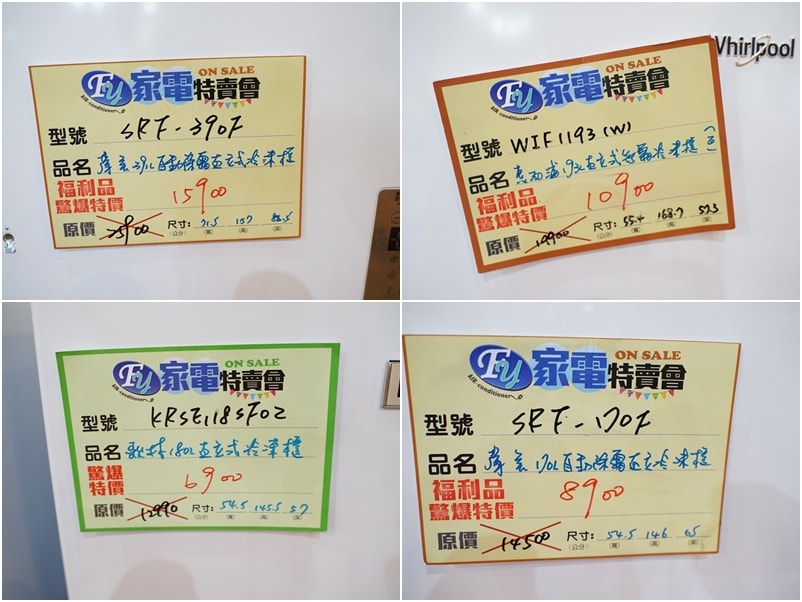 Fy 家電特賣會 ON SALE
AIR-conditioner
型號 SRF-390F
品名 391L自動除霜直立式冷凍櫃
福利品
驚爆特價 15900
原價 25900 尺寸: 71.5 157 82.5
(公分) (寬) (高) (深)
Whirlpool
Fy 家電特賣會 ON SALE
AIR-conditioner
型號 WIF1193(W)
品名 惠而浦193L直立式無霜冷凍櫃
福利品
驚爆特價 10900
原價 19900 尺寸: 55.4 168.7 57.3
(公分) (寬) (高) (深)
Fy 家電特賣會 ON SALE
AIR-conditioner
型號 KRSE118SF02
品名 歌林180L直立式冷凍櫃
驚爆
特價 6900
原價 12990 尺寸: 54.5 145.5 57
(公分) (寬) (高) (深)
Fy 家電特賣會 ON SALE
AIR-conditioner
型號 SRF-170F
品名 170L自動除霜直立冷凍櫃
福利品
驚爆特價 8900
原價 14500 尺寸: 54.5 146 65
(公分) (寬) (高) (深)